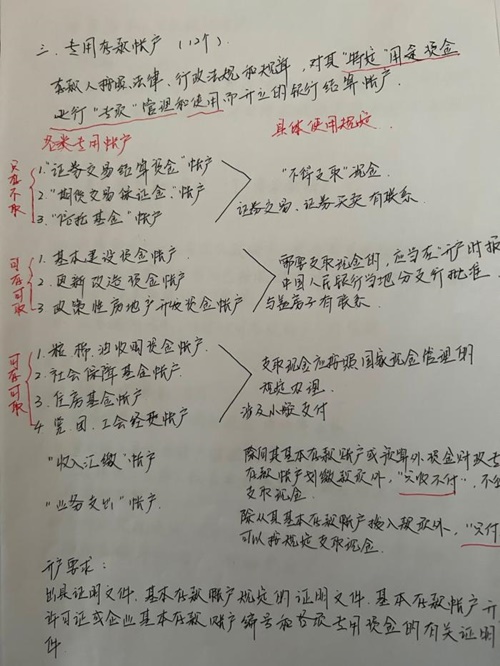 三、专用存款帐户（12个）.
存款人按照法律、行政法规和规章，对其"特定"用途资金
进行"专项"管理和使用而开立的银行结算帐户.
各类专用帐户
具体使用规定.
只存不取
1."证券交易结算资金"帐户
2."期货交易保证金"帐户
3."信托基金"帐户
"不得支取"现金.
证券交易、证券买卖有联系
可存可取
1. 基本建设资金帐户
2. 更新改造资金帐户
3 政策性房地产开发资金帐户
需要支取现金的，应当在"开户时报
中国人民银行当地分支行批准.
与盖房子有联系
可存可取
1. 粮、棉、油收购资金帐户.
2. 社会保障基金帐户.
3. 住房基金帐户
4. 党、团、工会经费帐户
支取现金应按照国家现金管理的
规定办理.
涉及小额支付
"收入汇缴"帐户
除向其基本存款账户或预算外资金财政专
存款帐户划缴款项外，"只收不付"，不
支取现金.
"业务支出"帐户.
除从其基本存款账户拨入款项外，"只付
可以按规定支取现金.
开户要求：
出具证明文件、基本存款帐户规定的证明文件、基本存款帐户开
许可证或企业基本存款账户编号和各项专用资金的有关证明
件